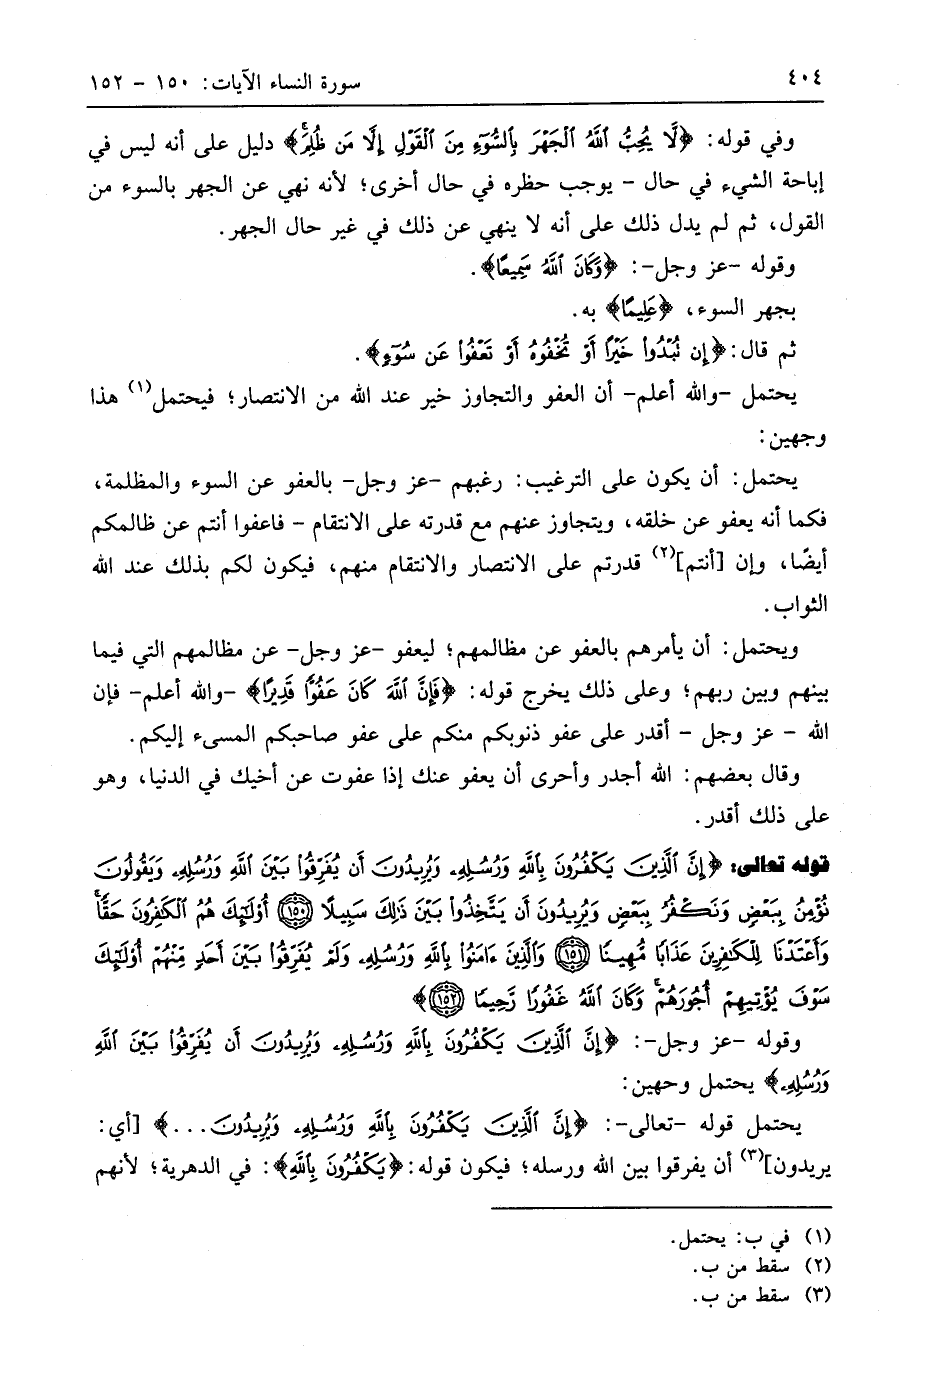 ٤٠٤ سورة النساء الآيات: ١٥٠ - ١٥٢
وفي قوله: ﴿لَّا يُحِبُّ ٱللَّهُ ٱلْجَهْرَ بِٱلسُّوٓءِ مِنَ ٱلْقَوْلِ إِلَّا مَن ظُلِمَ﴾ دليل على أنه ليس في
إباحة الشيء في حال - يوجب حظره في حال أخرى؛ لأنه نهي عن الجهر بالسوء من
القول، ثم لم يدل ذلك على أنه لا ينهي عن ذلك في غير حال الجهر.
وقوله -عز وجل-: ﴿وَكَانَ ٱللَّهُ سَمِيعًا﴾.
بجهر السوء، ﴿عَلِيمًا﴾ به.
ثم قال: ﴿إِن تُبْدُوا۟ خَيْرًا أَوْ تُخْفُوهُ أَوْ تَعْفُوا۟ عَن سُوٓءٍ﴾.
يحتمل -والله أعلم- أن العفو والتجاوز خير عند الله من الانتصار؛ فيحتمل(١) هذا
وجهين:
يحتمل: أن يكون على الترغيب: رغبهم -عز وجل- بالعفو عن السوء والمظلمة،
فكما أنه يعفو عن خلقه، ويتجاوز عنهم مع قدرته على الانتقام - فاعفوا أنتم عن ظالمكم
أيضًا، وإن [أنتم](٢) قدرتم على الانتصار والانتقام منهم، فيكون لكم بذلك عند الله
الثواب.
ويحتمل: أن يأمرهم بالعفو عن مظالمهم؛ ليعفو -عز وجل- عن مظالمهم التي فيما
بينهم وبين ربهم؛ وعلى ذلك يخرج قوله: ﴿فَإِنَّ ٱللَّهَ كَانَ عَفُوًّا قَدِيرًا﴾ -والله أعلم- فإن
الله - عز وجل - أقدر على عفو ذنوبكم منكم على عفو صاحبكم المسىء إليكم.
وقال بعضهم: الله أجدر وأحرى أن يعفو عنك إذا عفوت عن أخيك في الدنيا، وهو
على ذلك أقدر.
قوله تعالى: ﴿إِنَّ ٱلَّذِينَ يَكْفُرُونَ بِٱللَّهِ وَرُسُلِهِۦ وَيُرِيدُونَ أَن يُفَرِّقُوا۟ بَيْنَ ٱللَّهِ وَرُسُلِهِۦ وَيَقُولُونَ
نُؤْمِنُ بِبَعْضٍ وَنَكْفُرُ بِبَعْضٍ وَيُرِيدُونَ أَن يَتَّخِذُوا۟ بَيْنَ ذَٰلِكَ سَبِيلًا ﴿١٥٠﴾ أُو۟لَٰٓئِكَ هُمُ ٱلْكَٰفِرُونَ حَقًّا ۚ
وَأَعْتَدْنَا لِلْكَٰفِرِينَ عَذَابًا مُّهِينًا ﴿١٥١﴾ وَٱلَّذِينَ ءَامَنُوا۟ بِٱللَّهِ وَرُسُلِهِۦ وَلَمْ يُفَرِّقُوا۟ بَيْنَ أَحَدٍ مِّنْهُمْ أُو۟لَٰٓئِكَ
سَوْفَ يُؤْتِيهِمْ أُجُورَهُمْ ۗ وَكَانَ ٱللَّهُ غَفُورًا رَّحِيمًا ﴿١٥٢﴾﴾
وقوله -عز وجل-: ﴿إِنَّ ٱلَّذِينَ يَكْفُرُونَ بِٱللَّهِ وَرُسُلِهِۦ وَيُرِيدُونَ أَن يُفَرِّقُوا۟ بَيْنَ ٱللَّهِ
وَرُسُلِهِۦ﴾ يحتمل وجهين:
يحتمل قوله -تعالى-: ﴿إِنَّ ٱلَّذِينَ يَكْفُرُونَ بِٱللَّهِ وَرُسُلِهِۦ وَيُرِيدُونَ...﴾ [أي:
يريدون](٣) أن يفرقوا بين الله ورسله؛ فيكون قوله: ﴿يَكْفُرُونَ بِٱللَّهِ﴾: في الدهرية؛ لأنهم
(١) في ب: يحتمل.
(٢) سقط من ب.
(٣) سقط من ب.